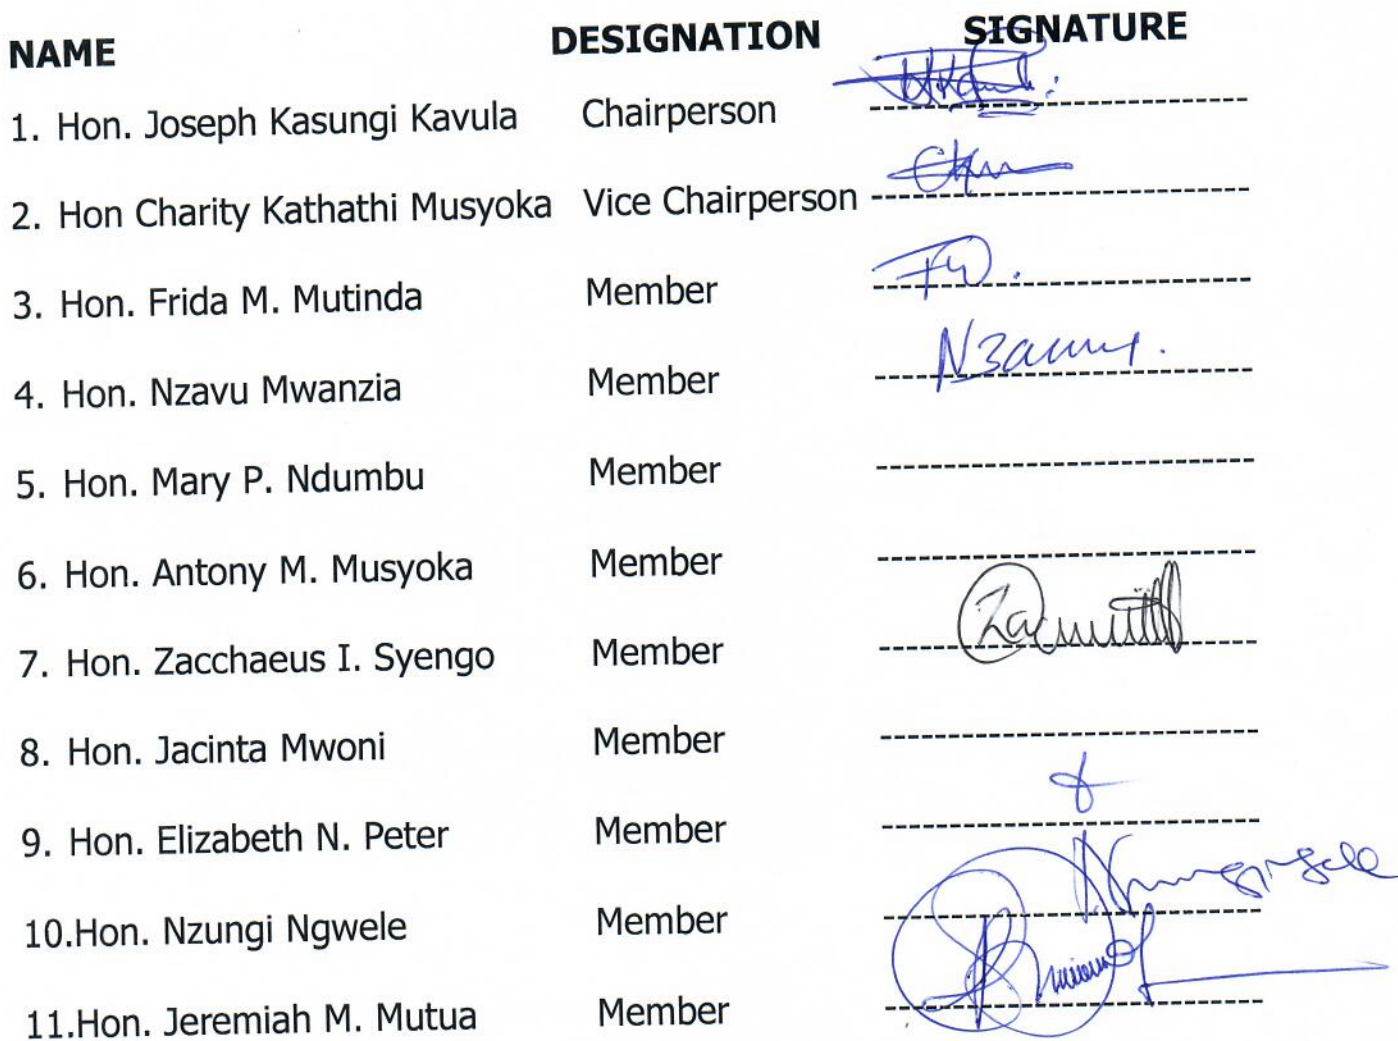 NAME DESIGNATION SIGNATURE
1. Hon. Joseph Kasungi Kavula Chairperson
2. Hon Charity Kathathi Musyoka Vice Chairperson
3. Hon. Frida M. Mutinda Member
4. Hon. Nzavu Mwanzia Member
5. Hon. Mary P. Ndumbu Member
6. Hon. Antony M. Musyoka Member
7. Hon. Zacchaeus I. Syengo Member
8. Hon. Jacinta Mwoni Member
9. Hon. Elizabeth N. Peter Member
10.Hon. Nzungi Ngwele Member
11.Hon. Jeremiah M. Mutua Member